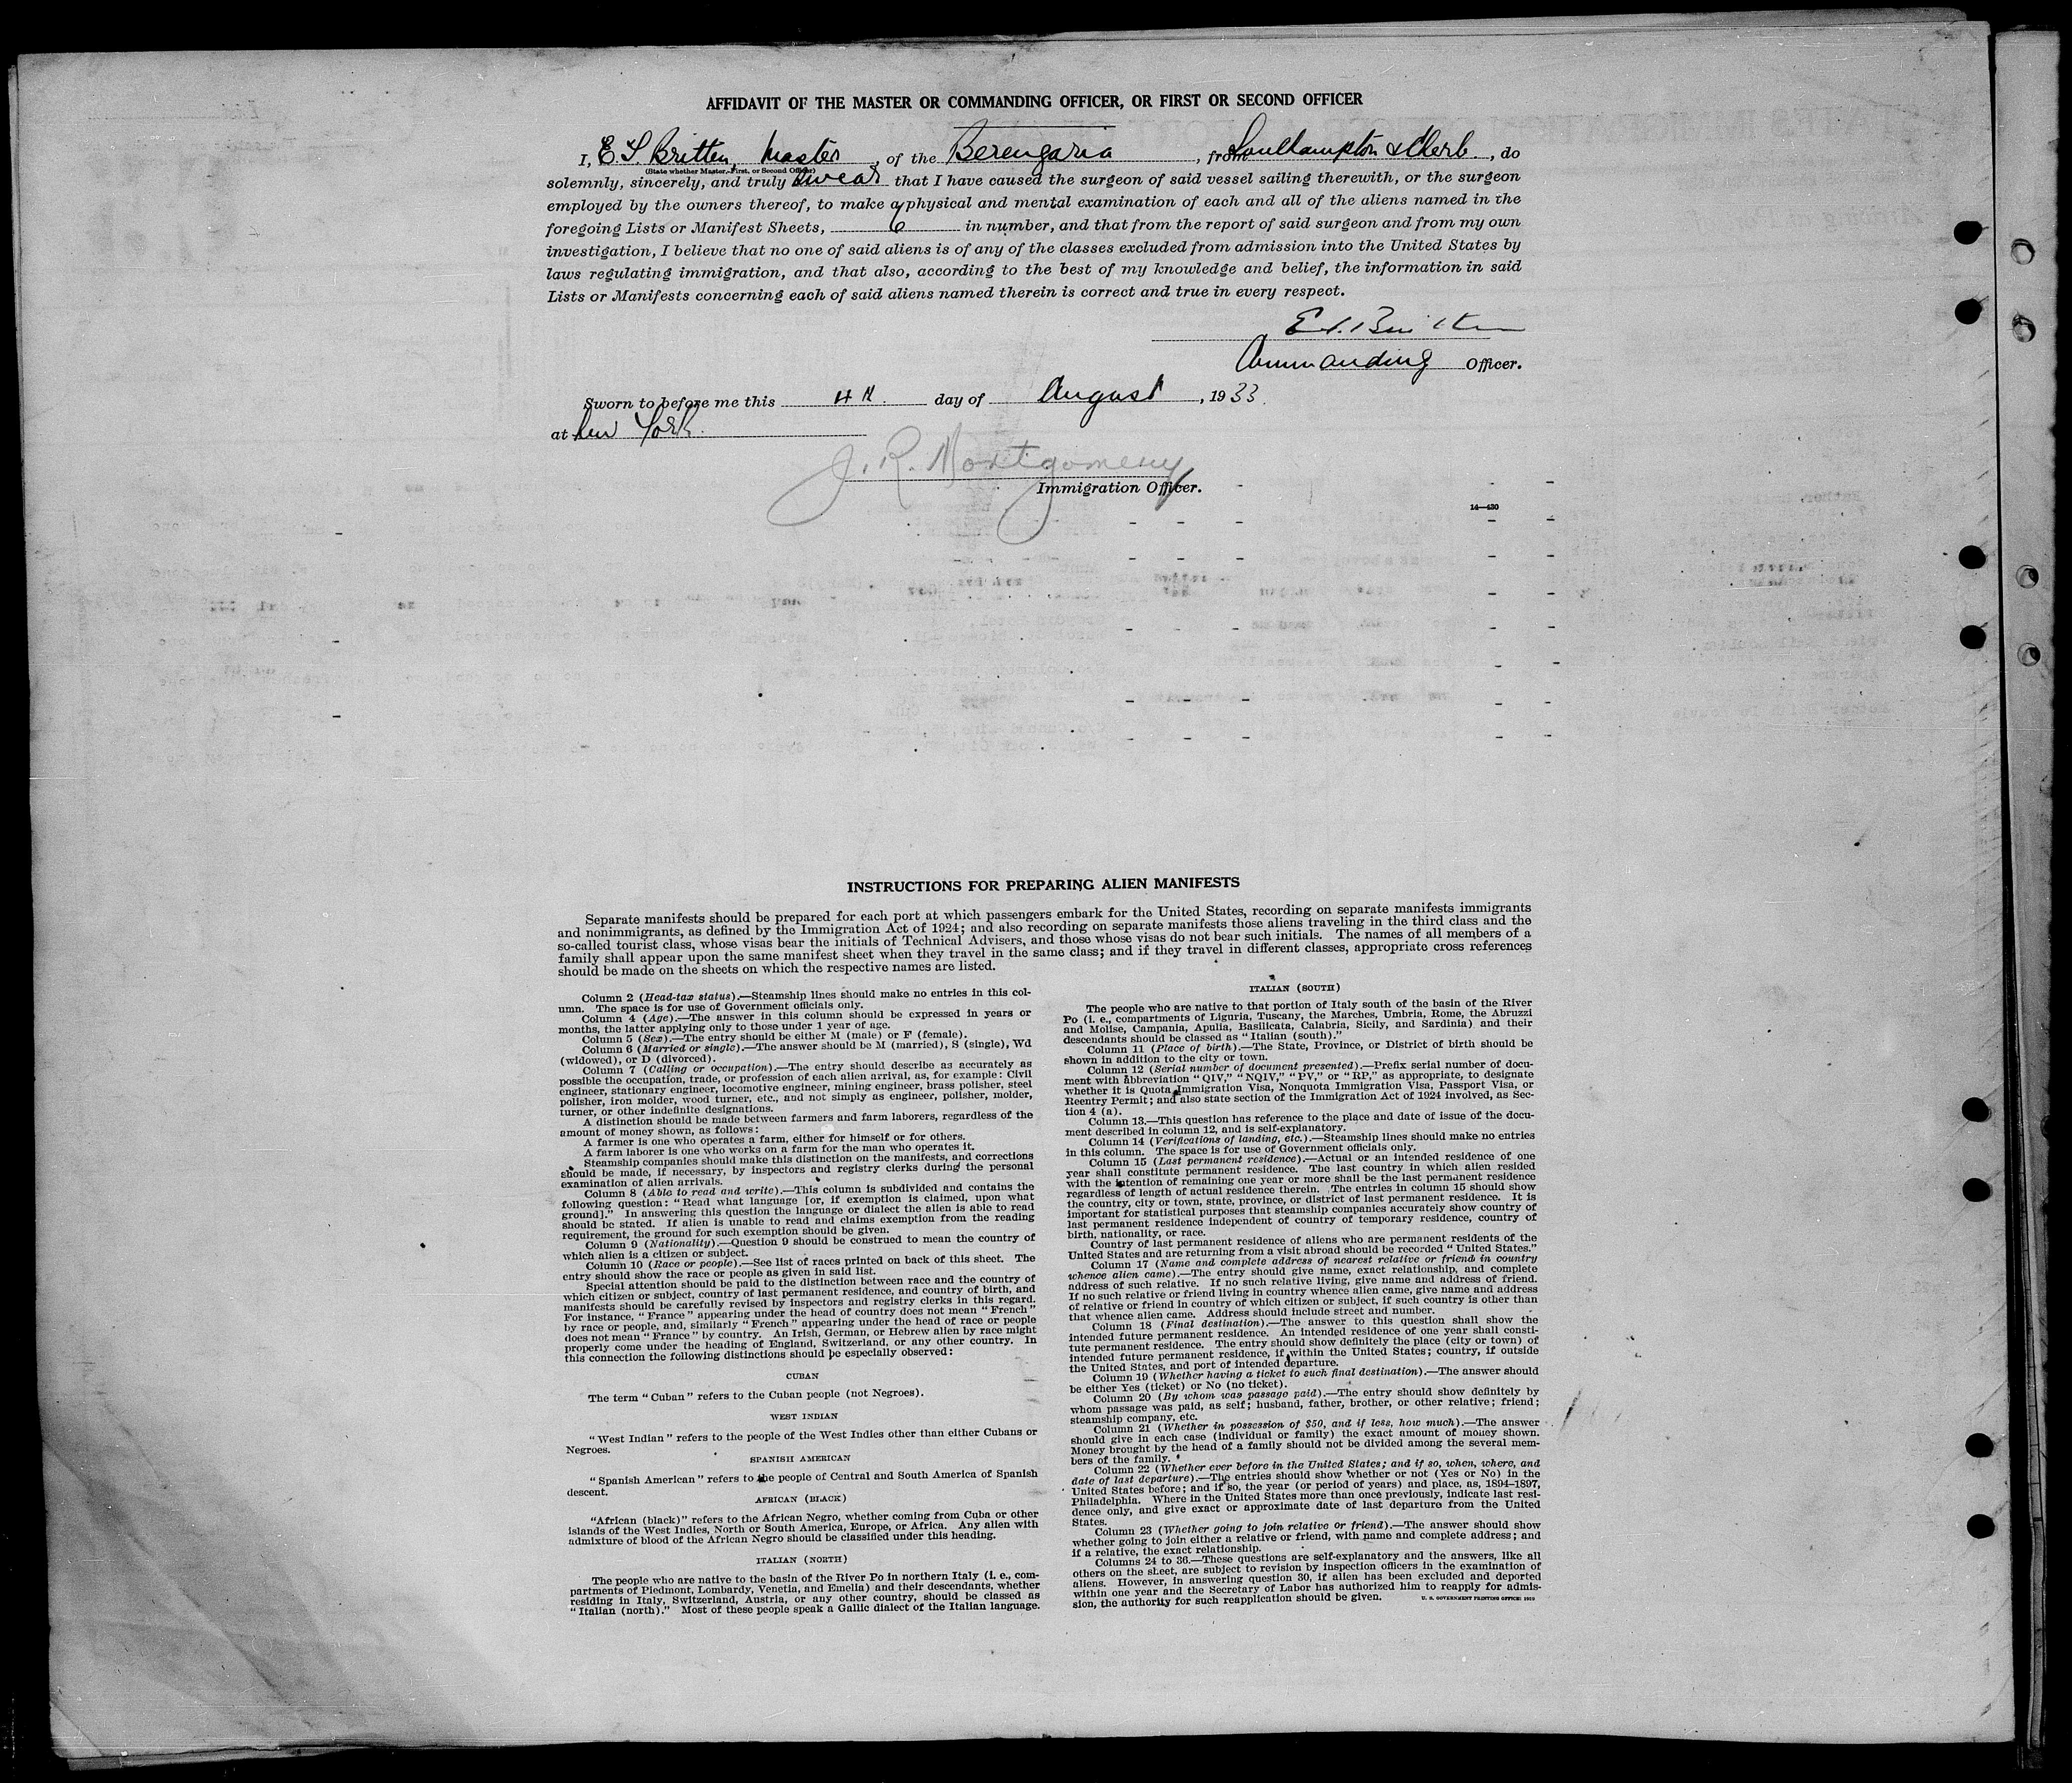 AFFIDAVIT OF THE MASTER OR COMMANDING OFFICER, OR FIRST OR SECOND OFFICER
I, E. S. Britten, Master, of the Berengaria, from Southampton & Cherb., do
(State whether Master, First, or Second Officer)
solemnly, sincerely, and truly swear that I have caused the surgeon of said vessel sailing therewith, or the surgeon
employed by the owners thereof, to make a physical and mental examination of each and all of the aliens named in the
foregoing Lists or Manifest Sheets, 6 in number, and that from the report of said surgeon and from my own
investigation, I believe that no one of said aliens is of any of the classes excluded from admission into the United States by
laws regulating immigration, and that also, according to the best of my knowledge and belief, the information in said
Lists or Manifests concerning each of said aliens named therein is correct and true in every respect.
E. S. Britten
Commanding Officer.
Sworn to before me this 4th day of August, 1933.
at New York.
J. R. Montgomery
Immigration Officer.
14—430
INSTRUCTIONS FOR PREPARING ALIEN MANIFESTS
Separate manifests should be prepared for each port at which passengers embark for the United States, recording on separate manifests immigrants
and nonimmigrants, as defined by the Immigration Act of 1924; and also recording on separate manifests those aliens traveling in the third class and the
so-called tourist class, whose visas bear the initials of Technical Advisers, and those whose visas do not bear such initials. The names of all members of a
family shall appear upon the same manifest sheet when they travel in the same class; and if they travel in different classes, appropriate cross references
should be made on the sheets on which the respective names are listed.
Column 2 (Head-tax status).—Steamship lines should make no entries in this col-
umn. The space is for use of Government officials only.
Column 4 (Age).—The answer in this column should be expressed in years or
months, the latter applying only to those under 1 year of age.
Column 5 (Sex).—The entry should be either M (male) or F (female).
Column 6 (Married or single).—The answer should be M (married), S (single), Wd
(widowed), or D (divorced).
Column 7 (Calling or occupation).—The entry should describe as accurately as
possible the occupation, trade, or profession of each alien arrival, as, for example: Civil
engineer, stationary engineer, locomotive engineer, mining engineer, brass polisher, steel
polisher, iron molder, wood turner, etc., and not simply as engineer, polisher, molder,
turner, or other indefinite designations.
A distinction should be made between farmers and farm laborers, regardless of the
amount of money shown, as follows:
A farmer is one who operates a farm, either for himself or for others.
A farm laborer is one who works on a farm for the man who operates it.
Steamship companies should make this distinction on the manifests, and corrections
should be made, if necessary, by inspectors and registry clerks during the personal
examination of alien arrivals.
Column 8 (Able to read and write).—This column is subdivided and contains the
following question: "Read what language [or, if exemption is claimed, upon what
ground]." In answering this question the language or dialect the alien is able to read
should be stated. If alien is unable to read and claims exemption from the reading
requirement, the ground for such exemption should be given.
Column 9 (Nationality).—Question 9 should be construed to mean the country of
which alien is a citizen or subject.
Column 10 (Race or people).—See list of races printed on back of this sheet. The
entry should show the race or people as given in said list.
Special attention should be paid to the distinction between race and the country of
which citizen or subject, country of last permanent residence, and country of birth, and
manifests should be carefully revised by inspectors and registry clerks in this regard.
For instance, "France" appearing under the head of country does not mean "French"
by race or people, and, similarly "French" appearing under the head of race or people
does not mean "France" by country. An Irish, German, or Hebrew alien by race might
properly come under the heading of England, Switzerland, or any other country. In
this connection the following distinctions should be especially observed:
CUBAN
The term "Cuban" refers to the Cuban people (not Negroes).
WEST INDIAN
"West Indian" refers to the people of the West Indies other than either Cubans or
Negroes.
SPANISH AMERICAN
"Spanish American" refers to the people of Central and South America of Spanish
descent.
AFRICAN (BLACK)
"African (black)" refers to the African Negro, whether coming from Cuba or other
islands of the West Indies, North or South America, Europe, or Africa. Any alien with
admixture of blood of the African Negro should be classified under this heading.
ITALIAN (NORTH)
The people who are native to the basin of the River Po in northern Italy (i. e., com-
partments of Piedmont, Lombardy, Venetia, and Emelia) and their descendants, whether
residing in Italy, Switzerland, Austria, or any other country, should be classed as
"Italian (north)." Most of these people speak a Gallic dialect of the Italian language.
ITALIAN (SOUTH)
The people who are native to that portion of Italy south of the basin of the River
Po (i. e., compartments of Liguria, Tuscany, the Marches, Umbria, Rome, the Abruzzi
and Molise, Campania, Apulia, Basilicata, Calabria, Sicily, and Sardinia) and their
descendants should be classed as "Italian (south)."
Column 11 (Place of birth).—The State, Province, or District of birth should be
shown in addition to the city or town.
Column 12 (Serial number of document presented).—Prefix serial number of docu-
ment with abbreviation "QIV," "NQIV," "PV," or "RP," as appropriate, to designate
whether it is Quota Immigration Visa, Nonquota Immigration Visa, Passport Visa, or
Reentry Permit; and also state section of the Immigration Act of 1924 involved, as Sec-
tion 4 (a).
Column 13.—This question has reference to the place and date of issue of the docu-
ment described in column 12, and is self-explanatory.
Column 14 (Verifications of landing, etc.).—Steamship lines should make no entries
in this column. The space is for use of Government officials only.
Column 15 (Last permanent residence).—Actual or an intended residence of one
year shall constitute permanent residence. The last country in which alien resided
with the intention of remaining one year or more shall be the last permanent residence
regardless of length of actual residence therein. The entries in column 15 should show
the country, city or town, state, province, or district of last permanent residence. It is
important for statistical purposes that steamship companies accurately show country of
last permanent residence independent of country of temporary residence, country of
birth, nationality, or race.
Country of last permanent residence of aliens who are permanent residents of the
United States and are returning from a visit abroad should be recorded "United States."
Column 17 (Name and complete address of nearest relative or friend in country
whence alien came).—The entry should give name, exact relationship, and complete
address of such relative. If no such relative living, give name and address of friend.
If no such relative or friend living in country whence alien came, give name and address
of relative or friend in country of which citizen or subject, if such country is other than
that whence alien came. Address should include street and number.
Column 18 (Final destination).—The answer to this question shall show the
intended future permanent residence. An intended residence of one year shall consti-
tute permanent residence. The entry should show definitely the place (city or town) of
intended future permanent residence, if within the United States; country, if outside
the United States, and port of intended departure.
Column 19 (Whether having a ticket to such final destination).—The answer should
be either Yes (ticket) or No (no ticket).
Column 20 (By whom was passage paid).—The entry should show definitely by
whom passage was paid, as self; husband, father, brother, or other relative; friend;
steamship company, etc.
Column 21 (Whether in possession of $50, and if less, how much).—The answer
should give in each case (individual or family) the exact amount of money shown.
Money brought by the head of a family should not be divided among the several mem-
bers of the family.
Column 22 (Whether ever before in the United States; and if so, when, where, and
date of last departure).—The entries should show whether or not (Yes or No) in the
United States before; and if so, the year (or period of years) and place, as, 1894–1897,
Philadelphia. Where in the United States more than once previously, indicate last resi-
dence only, and give exact or approximate date of last departure from the United
States.
Column 23 (Whether going to join relative or friend).—The answer should show
whether going to join either a relative or friend, with name and complete address; and
if a relative, the exact relationship.
Columns 24 to 36.—These questions are self-explanatory and the answers, like all
others on the sheet, are subject to revision by inspection officers in the examination of
aliens. However, in answering question 30, if alien has been excluded and deported
within one year and the Secretary of Labor has authorized him to reapply for admis-
sion, the authority for such reapplication should be given.
U. S. GOVERNMENT PRINTING OFFICE: